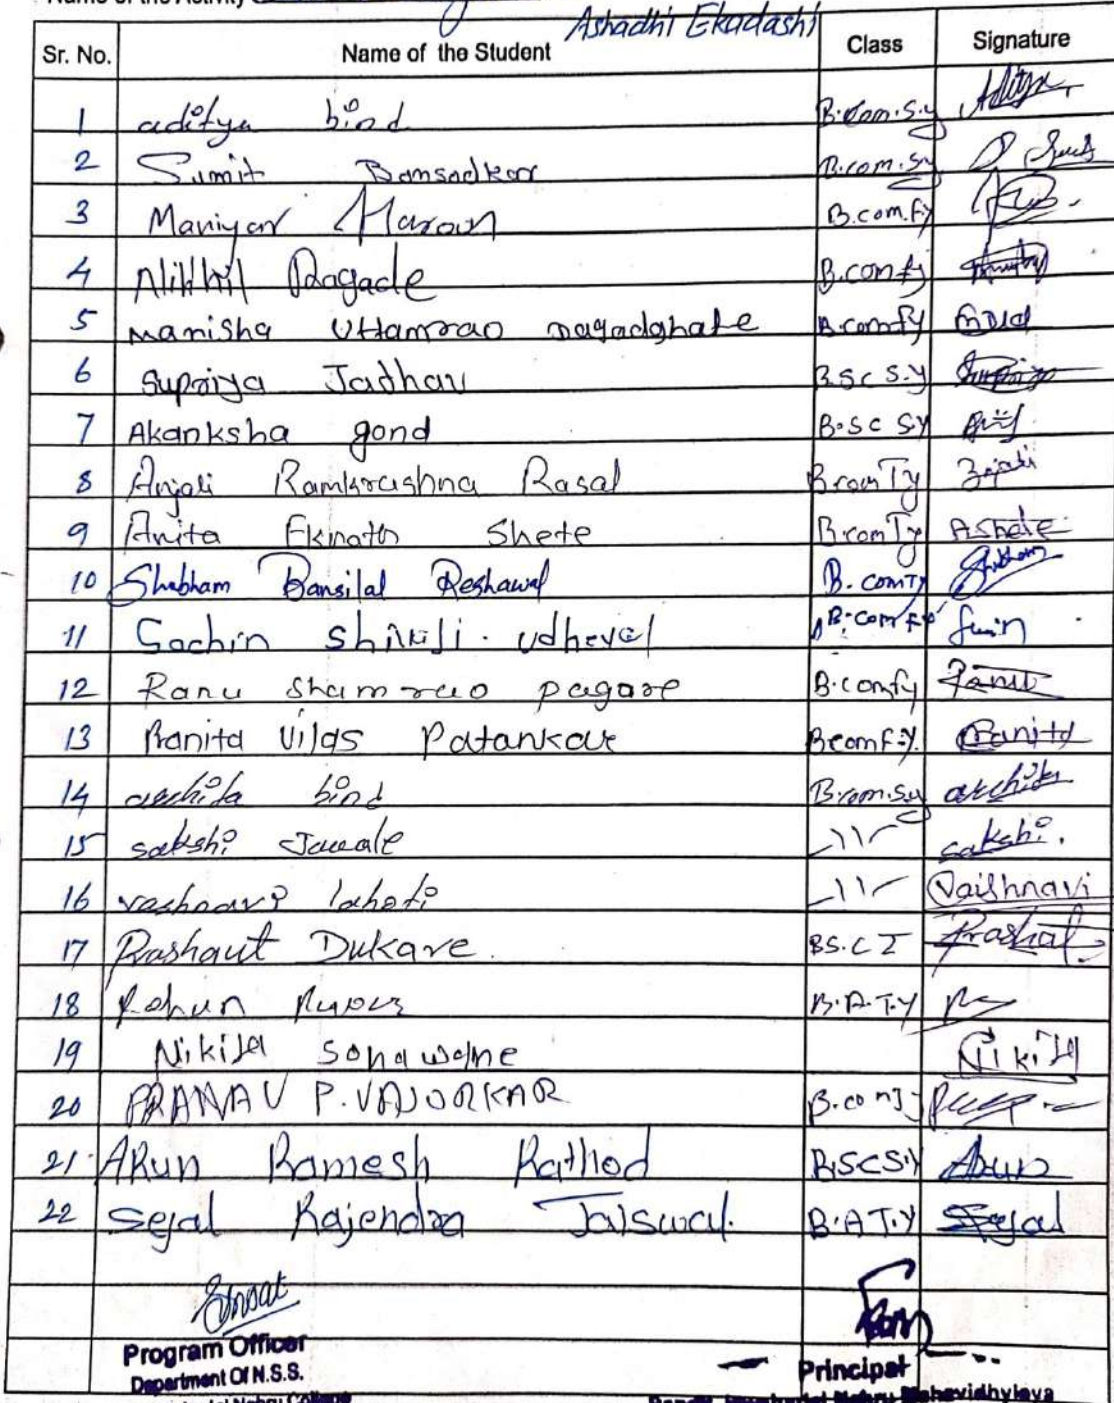 Name of the Activity
Ashadhi Ekadashi
Sr. No. Name of the Student Class Signature
1 aditya bind B.com.S.y Aditya
2 Sumit Bansodkar B.com.sy
3 Maniyar Haroun B.com.fy
4 Nikhil Dagade B.comfy
5 Manisha Uttamrao Dagadghate B.comfy
6 Supriya Jadhav B.Sc S.y Supriya
7 Akanksha gond B.SC SY
8 Anjali Ramkrushna Rasal B.com Ty
9 Anita Eknath Shete B.com Ty AShete
10 Shubham Bansilal Reshawal B.comTy Shubham
11 Sachin Shivaji. Udheval B.com FY
12 Ranu Shamrao pagare B.comfy Ranu
13 Ranita Vilas Patankar B.com F.Y. Ranita
14 archita bind B.com.Sy archita
15 sakshi Jawale -11- sakshi.
16 vashnavi lahoti -11- Vaishnavi
17 Prashant Dukare. BS.C I Prashat
18 B.A.T.Y
19 Nikita Sonawane Nikita
20 PRANAV P. VAJORKAR B.com
21 ARun Ramesh Rathod B.SCS.Y Arun
22 Sejal Rajendra Jaiswal. B.A T.Y Sejal
Program Officer
Department Of N.S.S.
Nehru College
Principal
Nehru Mahavidhylaya